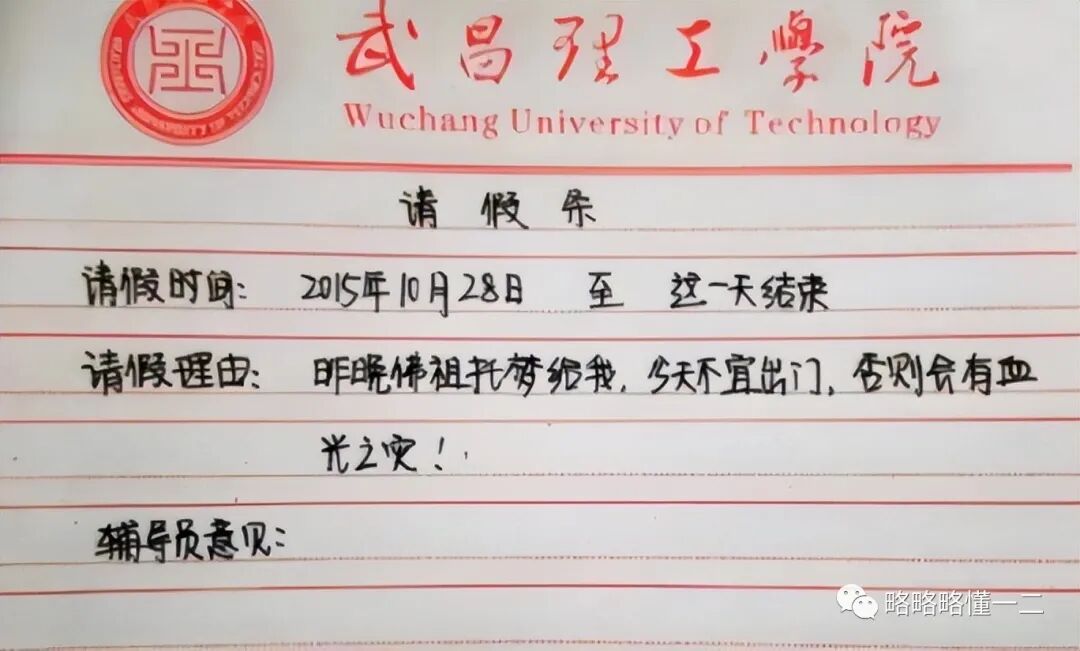 武昌理工學院
Wuchang University of Technology
请假条
请假时间： 2015年10月28日 至 这一天结束
请假理由： 昨晚佛祖托梦给我，今天不宜出门，否则会有血
光之灾！
辅导员意见：
略略略懂一二